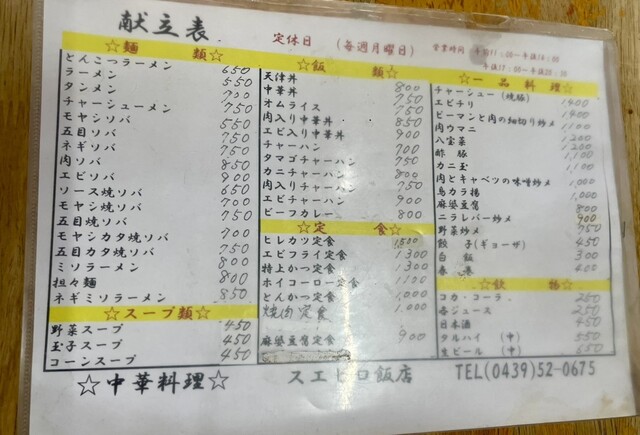 献立表
定休日 (毎週月曜日)
営業時間 午前11:00~午後14:00
午後17:00~午後20:30
☆麺類☆
とんこつラーメン 650
ラーメン 550
タンメン 700
チャーシューメン 750
モヤシソバ 550
五目ソバ 750
ネギソバ 750
肉ソバ 850
エビソバ 900
ソース焼ソバ 650
モヤシ焼ソバ 700
五目焼ソバ 750
モヤシカタ焼ソバ 700
五目カタ焼ソバ 750
ミソラーメン 800
担々麺 800
ネギミソラーメン 850
☆スープ類☆
野菜スープ 450
玉子スープ 450
コーンスープ 450
☆飯類☆
天津丼 800
中華丼 750
オムライス 750
肉入り中華丼 850
エビ入り中華丼 900
チャーハン 700
タマゴチャーハン 750
カニチャーハン 800
肉入りチャーハン 750
エビチャーハン 900
ビーフカレー 800
☆定食☆
ヒレカツ定食 1500
エビフライ定食 1300
特上かつ定食 1300
ホイコーロー定食 1100
とんかつ定食 1,000
焼肉定食 1,000
麻婆豆腐定食 900
☆一品料理☆
チャーシュー(焼豚) 1400
エビチリ 1400
ピーマンと肉の細切り炒メ 1,100
肉ウマニ 1200
八宝菜 1200
酢豚 1,100
カニ玉 1,100
肉とキャベツの味噌炒メ 1,000
鳥カラ揚 1,000
麻婆豆腐 800
ニラレバー炒メ 900
野菜炒メ 750
餃子(ギョーザ) 450
白飯 300
春巻 400
☆飲物☆
コカ・コーラ 250
各ジュース 250
日本酒 450
タルハイ (中) 550
生ビール (中) 650
☆中華料理☆ スエヒロ飯店 TEL(0439)52-0675